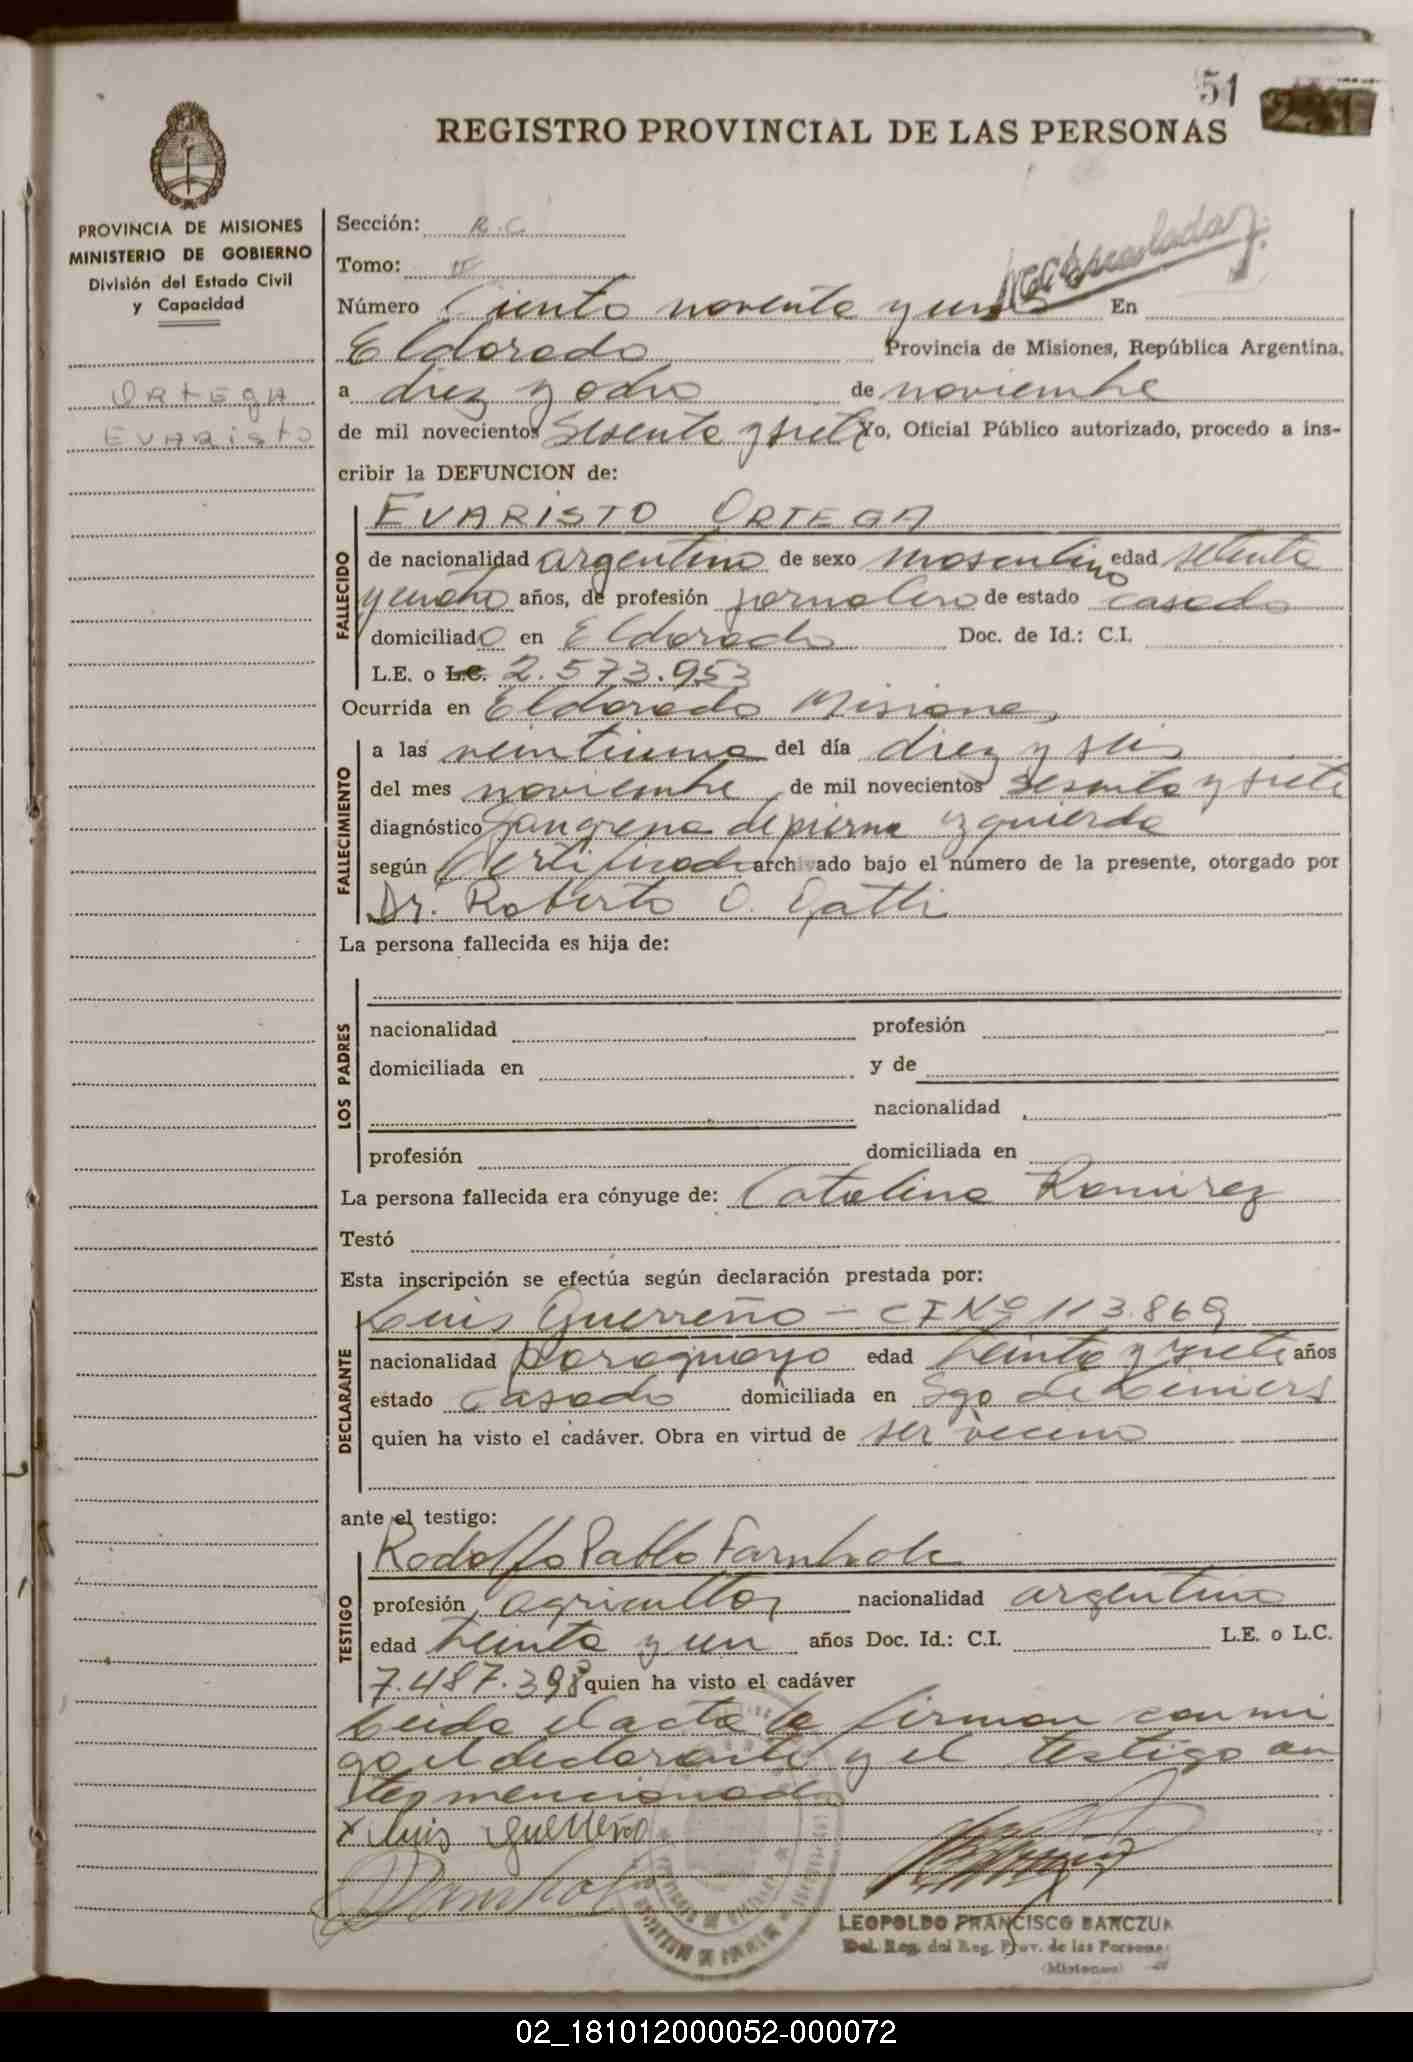 51
REGISTRO PROVINCIAL DE LAS PERSONAS
PROVINCIA DE MISIONES
MINISTERIO DE GOBIERNO
División del Estado Civil
y Capacidad
ORTEGA
EVARISTO
Sección: R.C.
Tomo: II
Número Ciento noventa y uno En
Eldorado Provincia de Misiones, República Argentina,
a diez y ocho de noviembre
de mil novecientos Sesenta y siete Yo, Oficial Público autorizado, procedo a ins-
cribir la DEFUNCION de:
FALLECIDO
EVARISTO ORTEGA
de nacionalidad argentino de sexo masculino edad setenta
y cuatro años, de profesión jornalero de estado casado
domiciliado en Eldorado Doc. de Id.: C.I.
L.E. o L.C. 2.573.953
Ocurrida en Eldorado Misiones
FALLECIMIENTO
a las veintiuna del día diez y seis
del mes noviembre de mil novecientos sesenta y siete
diagnóstico gangrena de pierna izquierda
según Certificado archivado bajo el número de la presente, otorgado por
Dr. Roberto O. Gatti
La persona fallecida es hija de:
LOS PADRES
nacionalidad profesión
domiciliada en y de
nacionalidad
profesión domiciliada en
La persona fallecida era cónyuge de: Catalina Ramirez
Testó
Esta inscripción se efectúa según declaración prestada por:
DECLARANTE
Luis Guerreño - CI Nº 113.869
nacionalidad paraguayo edad treinta y siete años
estado casado domiciliada en Sgo de Liniers
quien ha visto el cadáver. Obra en virtud de ser vecino
ante el testigo:
TESTIGO
Rodolfo Pablo
profesión agricultor nacionalidad argentino
edad treinta y un años Doc. Id.: C.I. L.E. o L.C.
7.487.398 quien ha visto el cadáver
Leida el acta la firman conmi
go el declarante y el testigo an
tes mencionado
x Luis Guerreño
LEOPOLDO FRANCISCO BARCZUK
Del. Reg. del Reg. Prov. de las Personas
(Misiones)
02_181012000052-000072